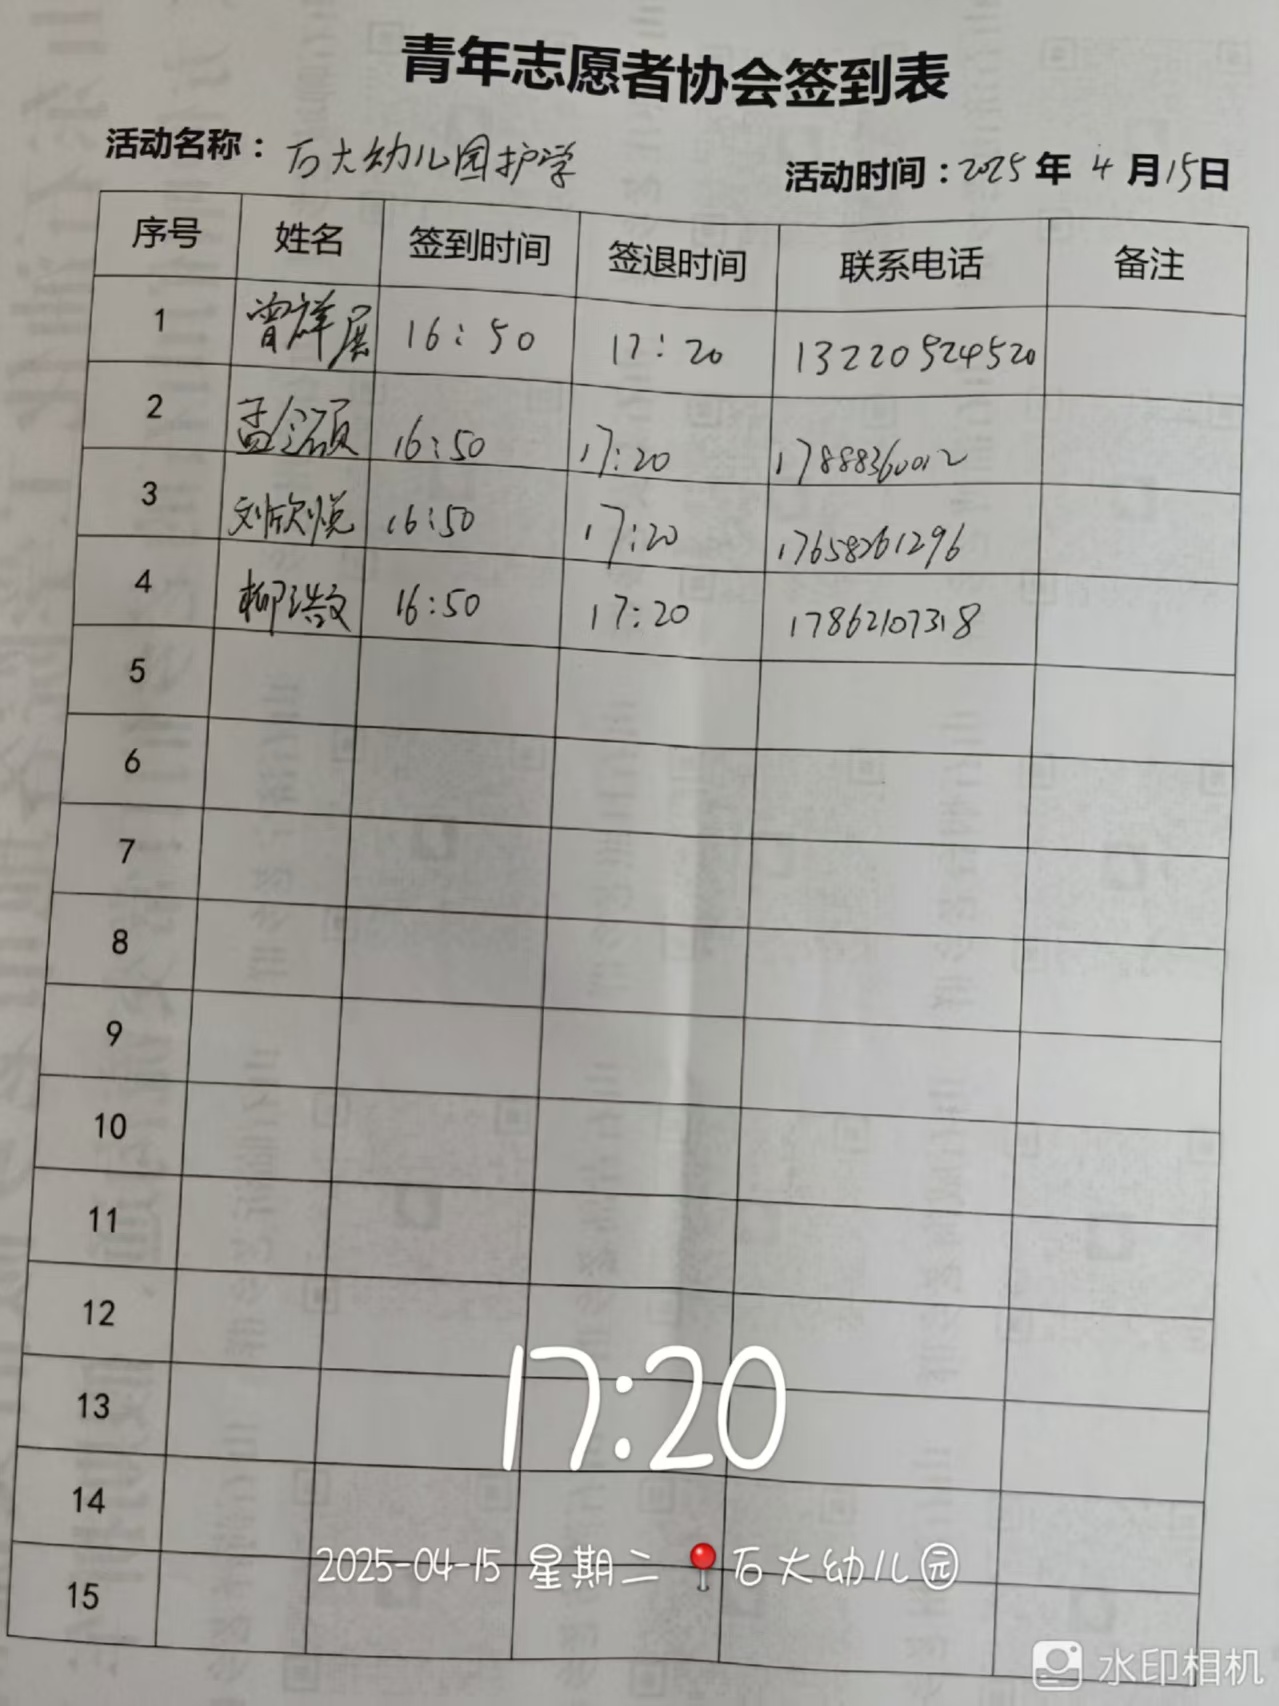 青年志愿者协会签到表
活动名称：石大幼儿园护学 活动时间：2025年4月15日
序号 姓名 签到时间 签退时间 联系电话 备注
1 曾祥展 16:50 17:20 13220524520
2 孟令硕 16:50 17:20 17888360012
3 刘欣悦 16:50 17:20 17658261296
4 柳浩文 16:50 17:20 17862107318
5
6
7
8
9
10
11
12
13
14
15
17:20
2025-04-15 星期二 石大幼儿园
水印相机